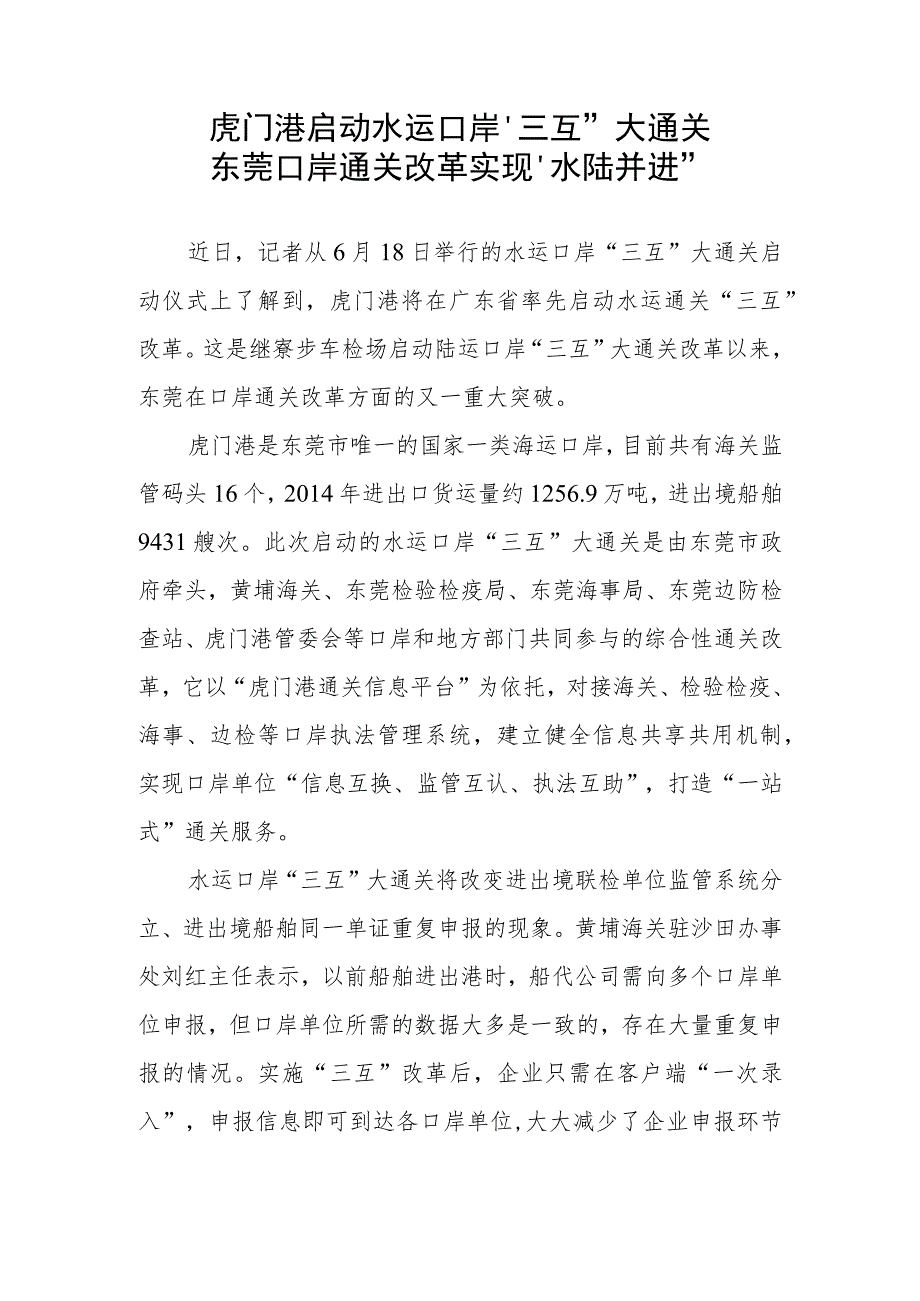 虎门港启动水运口岸'三互”大通关
东莞口岸通关改革实现'水陆并进”
近日，记者从6月18日举行的水运口岸“三互”大通关启
动仪式上了解到，虎门港将在广东省率先启动水运通关“三互”
改革。这是继寮步车检场启动陆运口岸“三互”大通关改革以来，
东莞在口岸通关改革方面的又一重大突破。
虎门港是东莞市唯一的国家一类海运口岸，目前共有海关监
管码头16个，2014年进出口货运量约1256.9万吨，进出境船舶
9431艘次。此次启动的水运口岸“三互”大通关是由东莞市政
府牵头，黄埔海关、东莞检验检疫局、东莞海事局、东莞边防检
查站、虎门港管委会等口岸和地方部门共同参与的综合性通关改
革，它以“虎门港通关信息平台”为依托，对接海关、检验检疫、
海事、边检等口岸执法管理系统，建立健全信息共享共用机制，
实现口岸单位“信息互换、监管互认、执法互助”，打造“一站
式”通关服务。
水运口岸“三互”大通关将改变进出境联检单位监管系统分
立、进出境船舶同一单证重复申报的现象。黄埔海关驻沙田办事
处刘红主任表示，以前船舶进出港时，船代公司需向多个口岸单
位申报，但口岸单位所需的数据大多是一致的，存在大量重复申
报的情况。实施“三互”改革后，企业只需在客户端“一次录
入”，申报信息即可到达各口岸单位,大大减少了企业申报环节